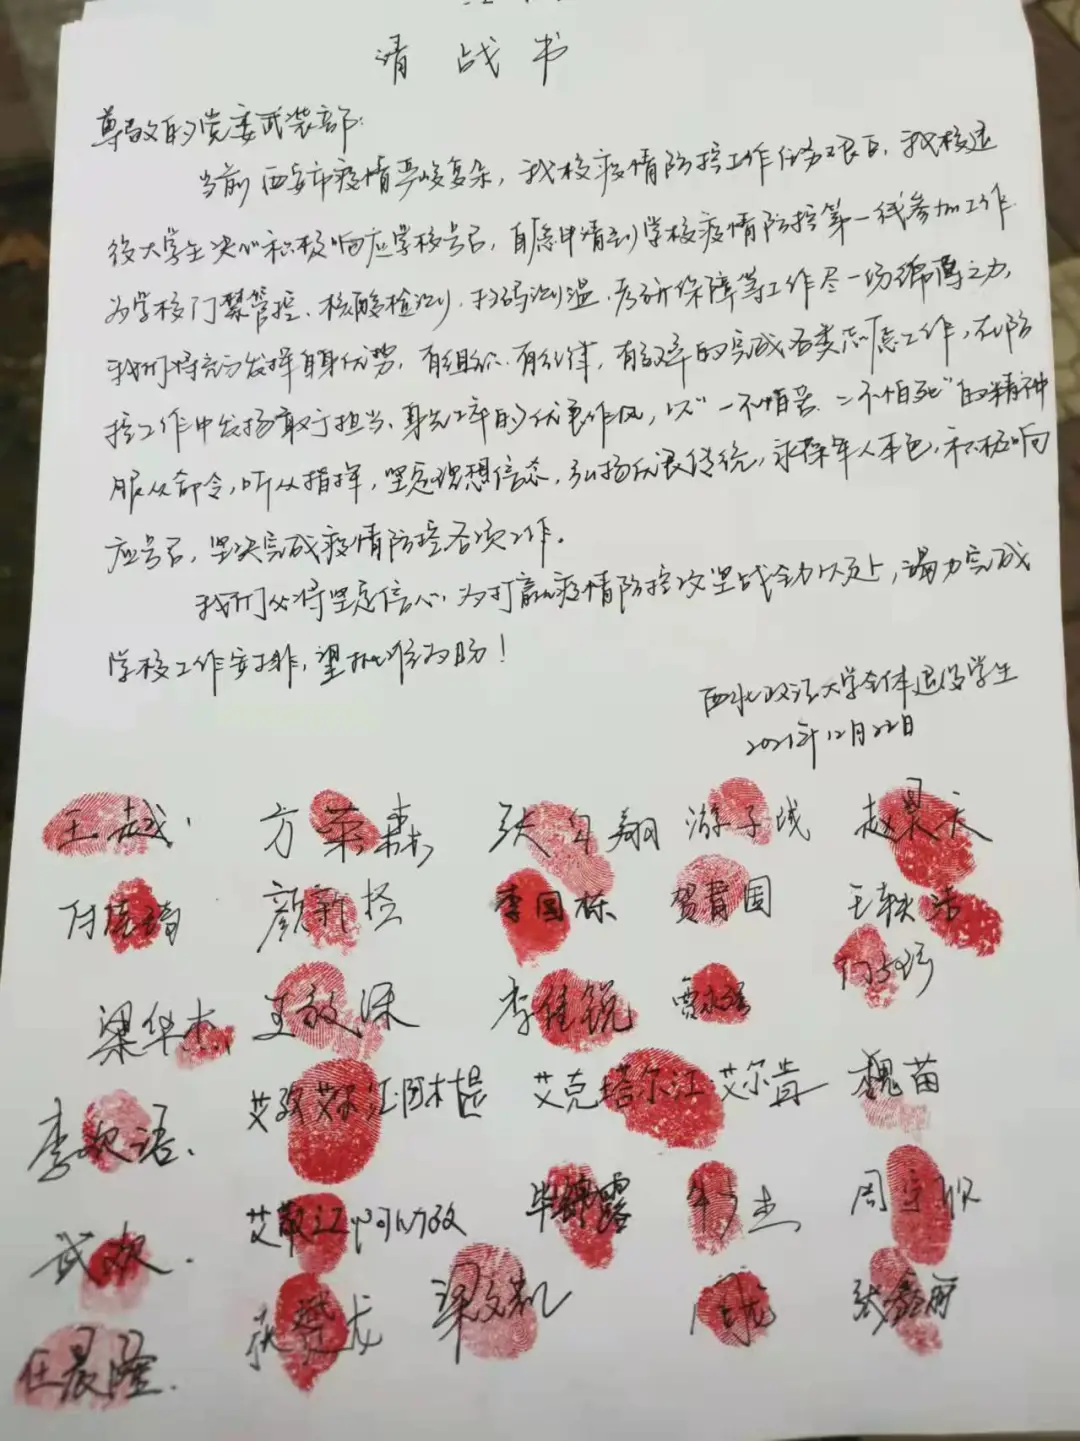 请战书
尊敬的党委武装部:
当前西安市疫情严峻复杂,我校疫情防控工作任务艰巨,我校退
役大学生决心积极响应学校号召,自愿申请到学校疫情防控第一线参加工作
为学校门禁管控、核酸检测、扫码测温、考研保障等工作尽一份绵薄之力,
我们将充分发挥自身优势,有组织、有纪律,有效率的完成各类志愿工作,在防
控工作中发扬敢于担当、身先士卒的优良作风,以"一不怕苦、二不怕死"的精神
服从命令,听从指挥,坚定理想信念,弘扬优良传统,永葆军人本色,积极响
应号召,坚决完成疫情防控各项工作。
我们必将坚定信心,为打赢疫情防控攻坚战全力以赴,竭力完成
学校工作安排,望批准为盼!
西北政法大学全体退役学生
2021年12月22日
王越 方荣森 张 翔 游子 赵昊天
颜新 李国栋 贺 国 王轶浩
梁华杰 王敏深 李佳锐 贾永强
李欢语 艾孜艾尔江·图 艾克塔尔江·艾尔肯 魏苗
武欢 艾散江·阿 毕锦露 牛 杰 周宇欣
任晨隆 龙 梁文凯 周龙 张鑫丽